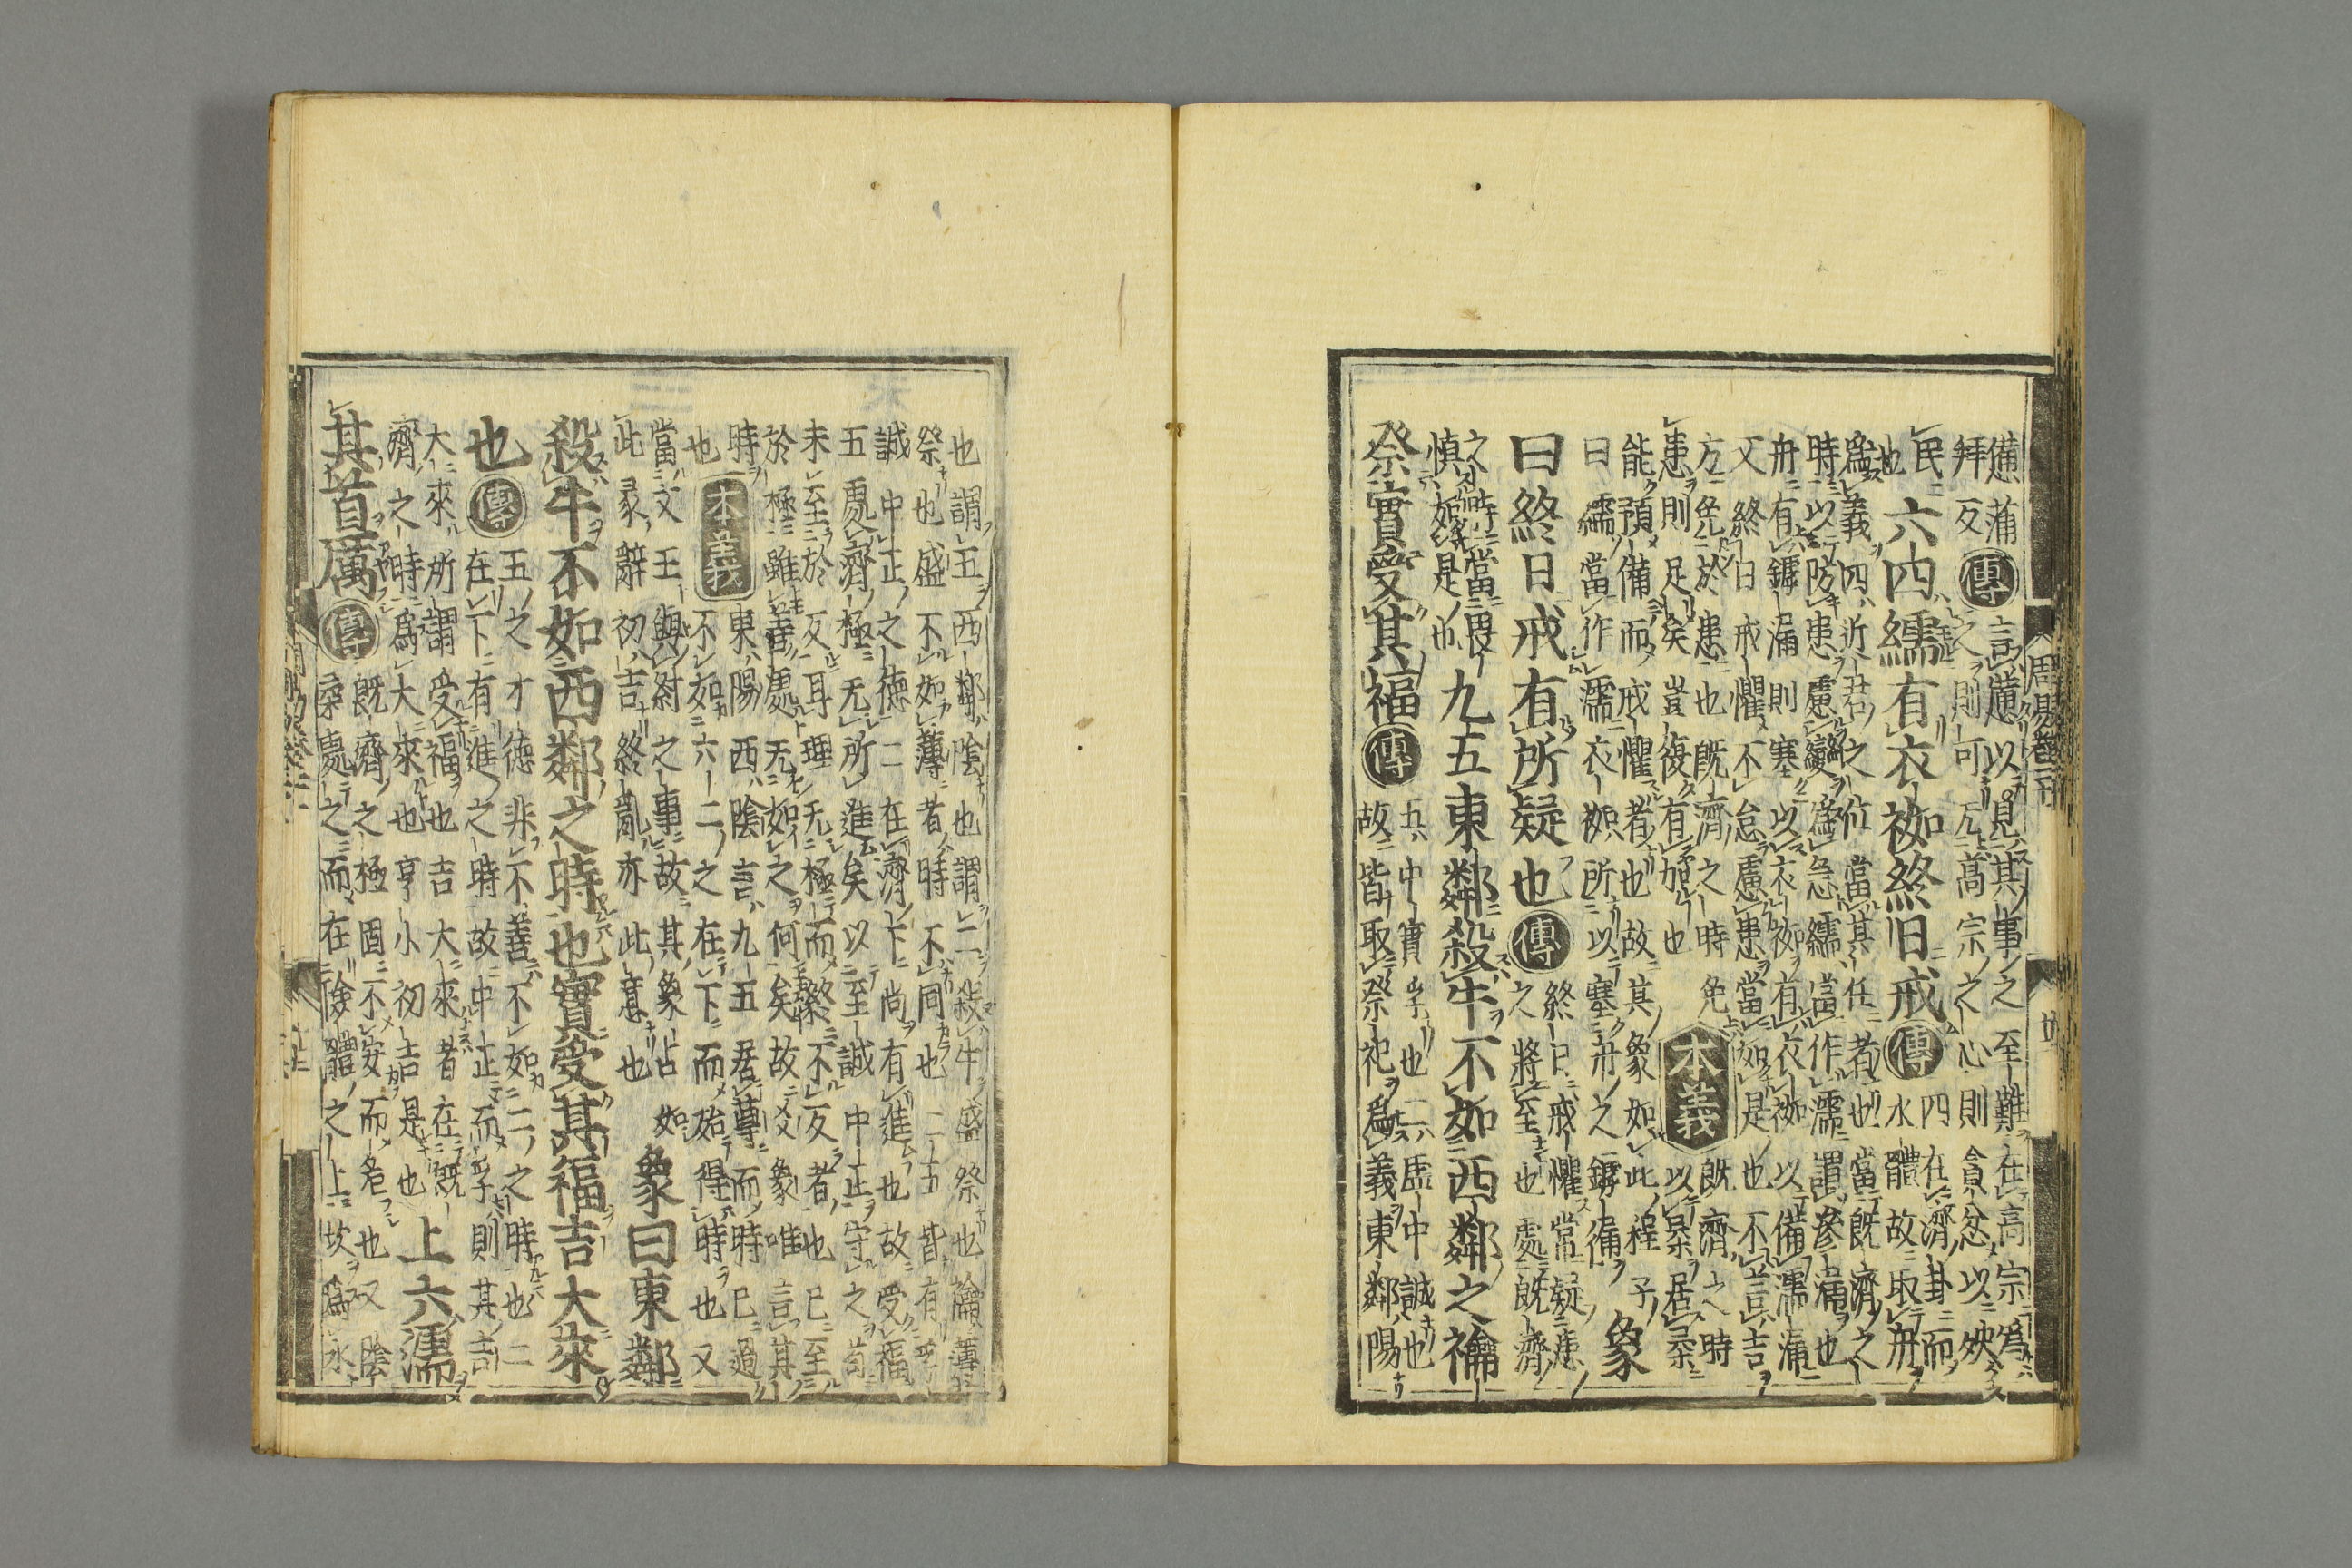 備蒲
拜反
傳
言憊以見其事之至難在高宗為
之則可无高宗之心則貪忿以殃
民
也
六四繻有衣袽終日戒
傳
四在濟卦而
水體故取舟
為義四近君之位當其任者也當既濟之
時以防患慮變為急繻當作濡謂滲漏也
舟有罅漏則塞以衣袽有衣袽以備濡漏
又終日戒懼不怠慮患當如是也不言吉
方免於患也既濟之時免
患則足矣豈復有加也
本義
既濟之時
以柔居柔
能預備而戒懼者也故其象如此程子
曰繻當作濡衣袽所以塞舟之罅漏
象
曰終日戒有所疑也
傳
終日戒懼常疑患
之將至也處既濟
之時當畏
慎如是也
九五東鄰殺牛不如西鄰之禴
祭實受其福
傳
五中實孚也二虛中誠也
故皆取祭祀為義東鄰陽
也謂五西鄰陰也謂二殺牛盛祭也禴薄
祭也盛不如薄者時不同也二五皆有孚
誠中正之德二在濟下尚有進也故受福
五處濟極无所進矣以至誠中正守之苟
未至於反耳理无極而終不反者也已至
於極雖善處无如之何矣故爻象唯言其
時
也
本義
東陽西陰言九五居尊而時已過
不如六二之在下而始得時也又
當文王與紂之事故其象占如
此彖辭初吉終亂亦此意也
象曰東鄰
殺牛不如西鄰之時也實受其福吉大來
也
傳
五之才德非不善不如二之時也二
在下有進之時故中正而孚則其吉
大來所謂受福也吉大來者在既
濟之時為大來也亨小初吉是也
上六濡
其首厲
傳
既濟之極固不安而危也又陰
柔處之而在險體之上坎為水